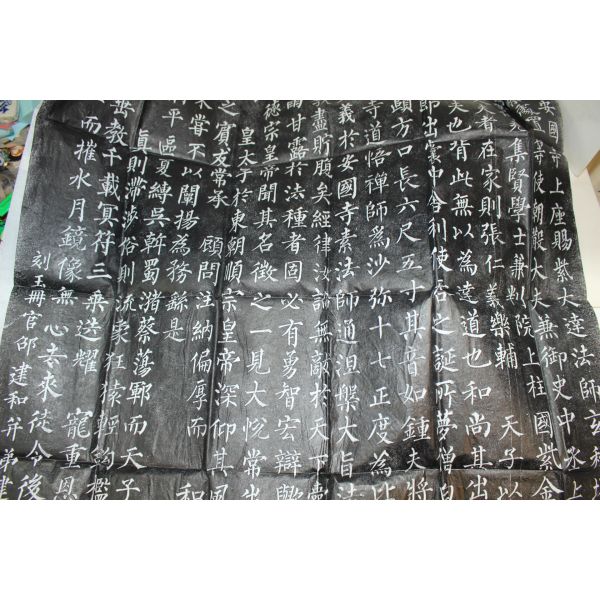 安國寺上座賜紫大達法師玄
等使朝散大夫兼御史中丞上
集賢學士兼判院上柱國紫金
夫者在家則張仁義禮樂輔 天子以
夫也背此無以為達道也和尚其出
即出囊中舍利使吞之誕所夢僧白
頤方口長六尺五寸其音如鍾夫將
寺道悟禪師為沙弥十七正度為比
義於安國寺素法師通涅槃大旨
盡貯腹矣經律汝論無敵於天下
雨甘露於法種者固必有勇智宏辯歟
德宗皇帝聞其名徵之一見大悅常出
皇太子於東朝順宗皇帝深仰其風
之賓友常承 顧問注納偏厚而 和
未嘗不以闡揚為務繇是
平區夏縛吳斡蜀瀦蔡蕩鄆而天子
真則滯涉俗則流象狂猿輕鉤檻
教千載冥符三乘迭耀 寵重恩
而摧水月鏡像無心去來徒令後
刻玉冊官邵建和并弟建